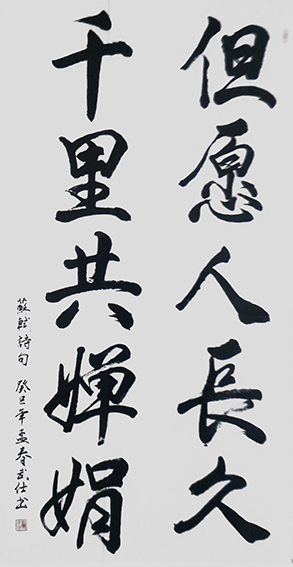 但愿人長久
千里共嬋娟
蘇軾詩句 癸巳年孟春武仕書